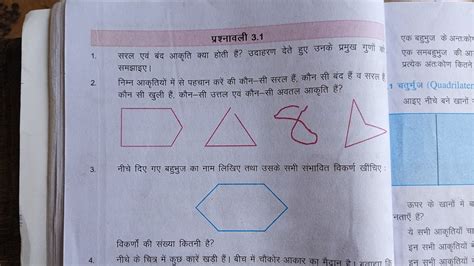 प्रश्नावली 3.1
1. सरल एवं बंद आकृति क्या होती हैं? उदाहरण देते हुए उनके प्रमुख गुणों को
समझाइए।
2. निम्न आकृतियों में से पहचान करें की कौन-सी सरल हैं, कौन सी बंद हैं व सरल हैं
कौन सी खुली हैं, कौन-सी उत्तल एवं कौन-सी अवतल आकृति हैं?
3. नीचे दिए गए बहुभुज का नाम लिखिए तथा उसके सभी संभावित विकर्ण खींचिए :
विकर्णों की संख्या कितनी है?
4. नीचे के चित्र में कुछ कारें खड़ी हैं। बीच में चौकोर आकार का मैदान है। बताइए कि
एक बहुभुज के अन्तःकोण
एक समबहुभुज की
प्रत्येक अंतःकोण कितने
चतुर्भुज (Quadrilater
आइए नीचे बने खानों
ऊपर के खानों में
नताएँ हैं?
ये सभी आकृतियाँ
इन सभी आकृतियों
इन सभी